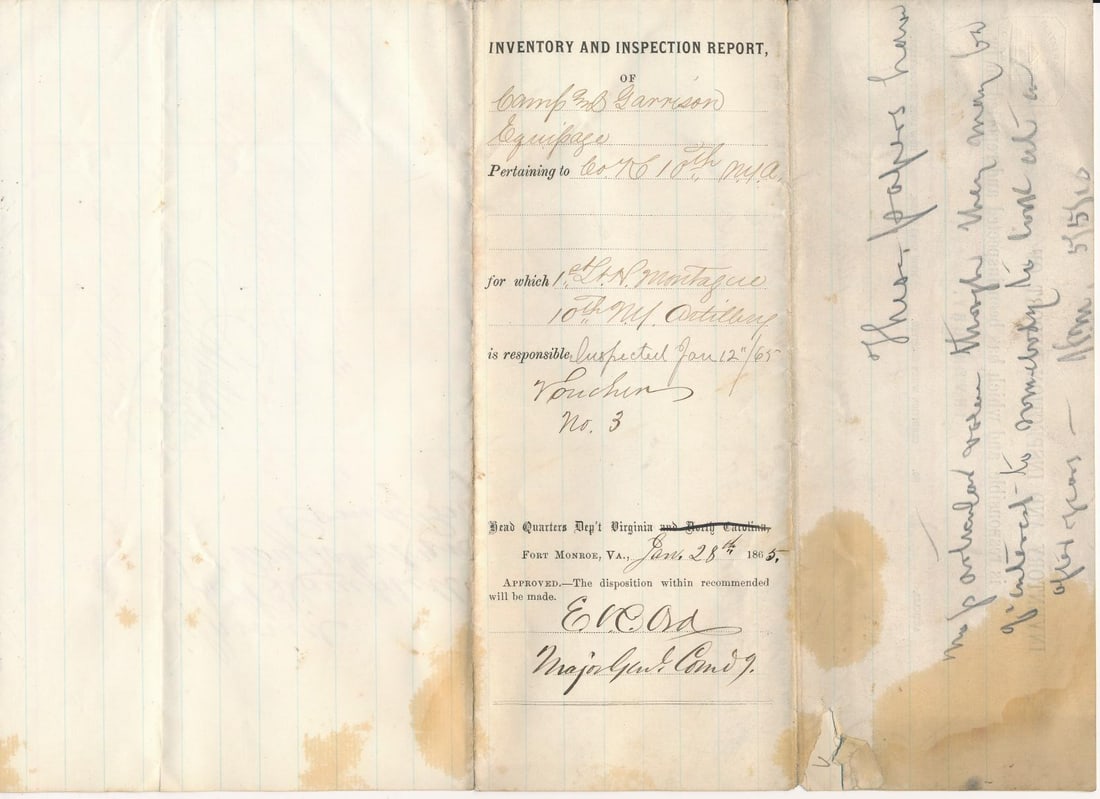 INVENTORY AND INSPECTION REPORT,
OF
Camp and Garrison
Equipage
Pertaining to Co. K 10th N.Y.A.
for which 1st Lt. H. Montague
10th N.Y. Artillery
is responsible Inspected Jan 12"/65
Voucher
No. 3
Head Quarters Dep't Virginia and North Carolina,
FORT MONROE, VA., Jan. 28th 1865.
APPROVED.—The disposition within recommended
will be made.
E O C Ord
Major Genl. Comd'g.
These papers have
no particular value though they may be
of interest to somebody to look at in
after years —
5/5/10